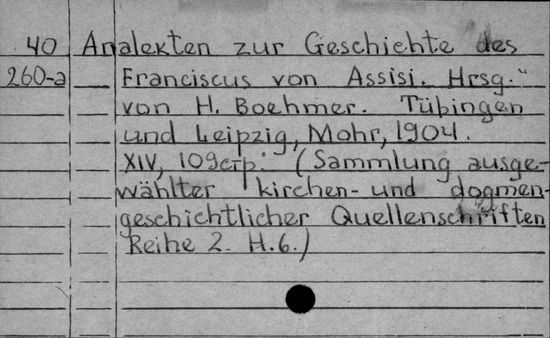 40 Analekten zur Geschichte des
260-a Franciscus von Assisi. Hrsg.
von H. Boehmer. Tübingen
und Leipzig, Mohr, 1904.
XIV, 109стр. (Sammlung ausge-
wählter kirchen- und dogmen-
geschichtlicher Quellenschriften
Reihe 2. H.6.)